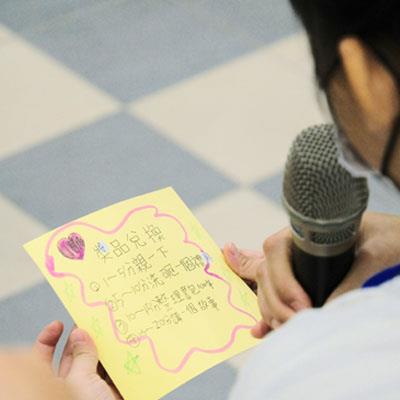 獎品兌換
①1~5分親一下
②5~10分洗碗一個禮
③10~15分整理書包
④~20分講一個故事